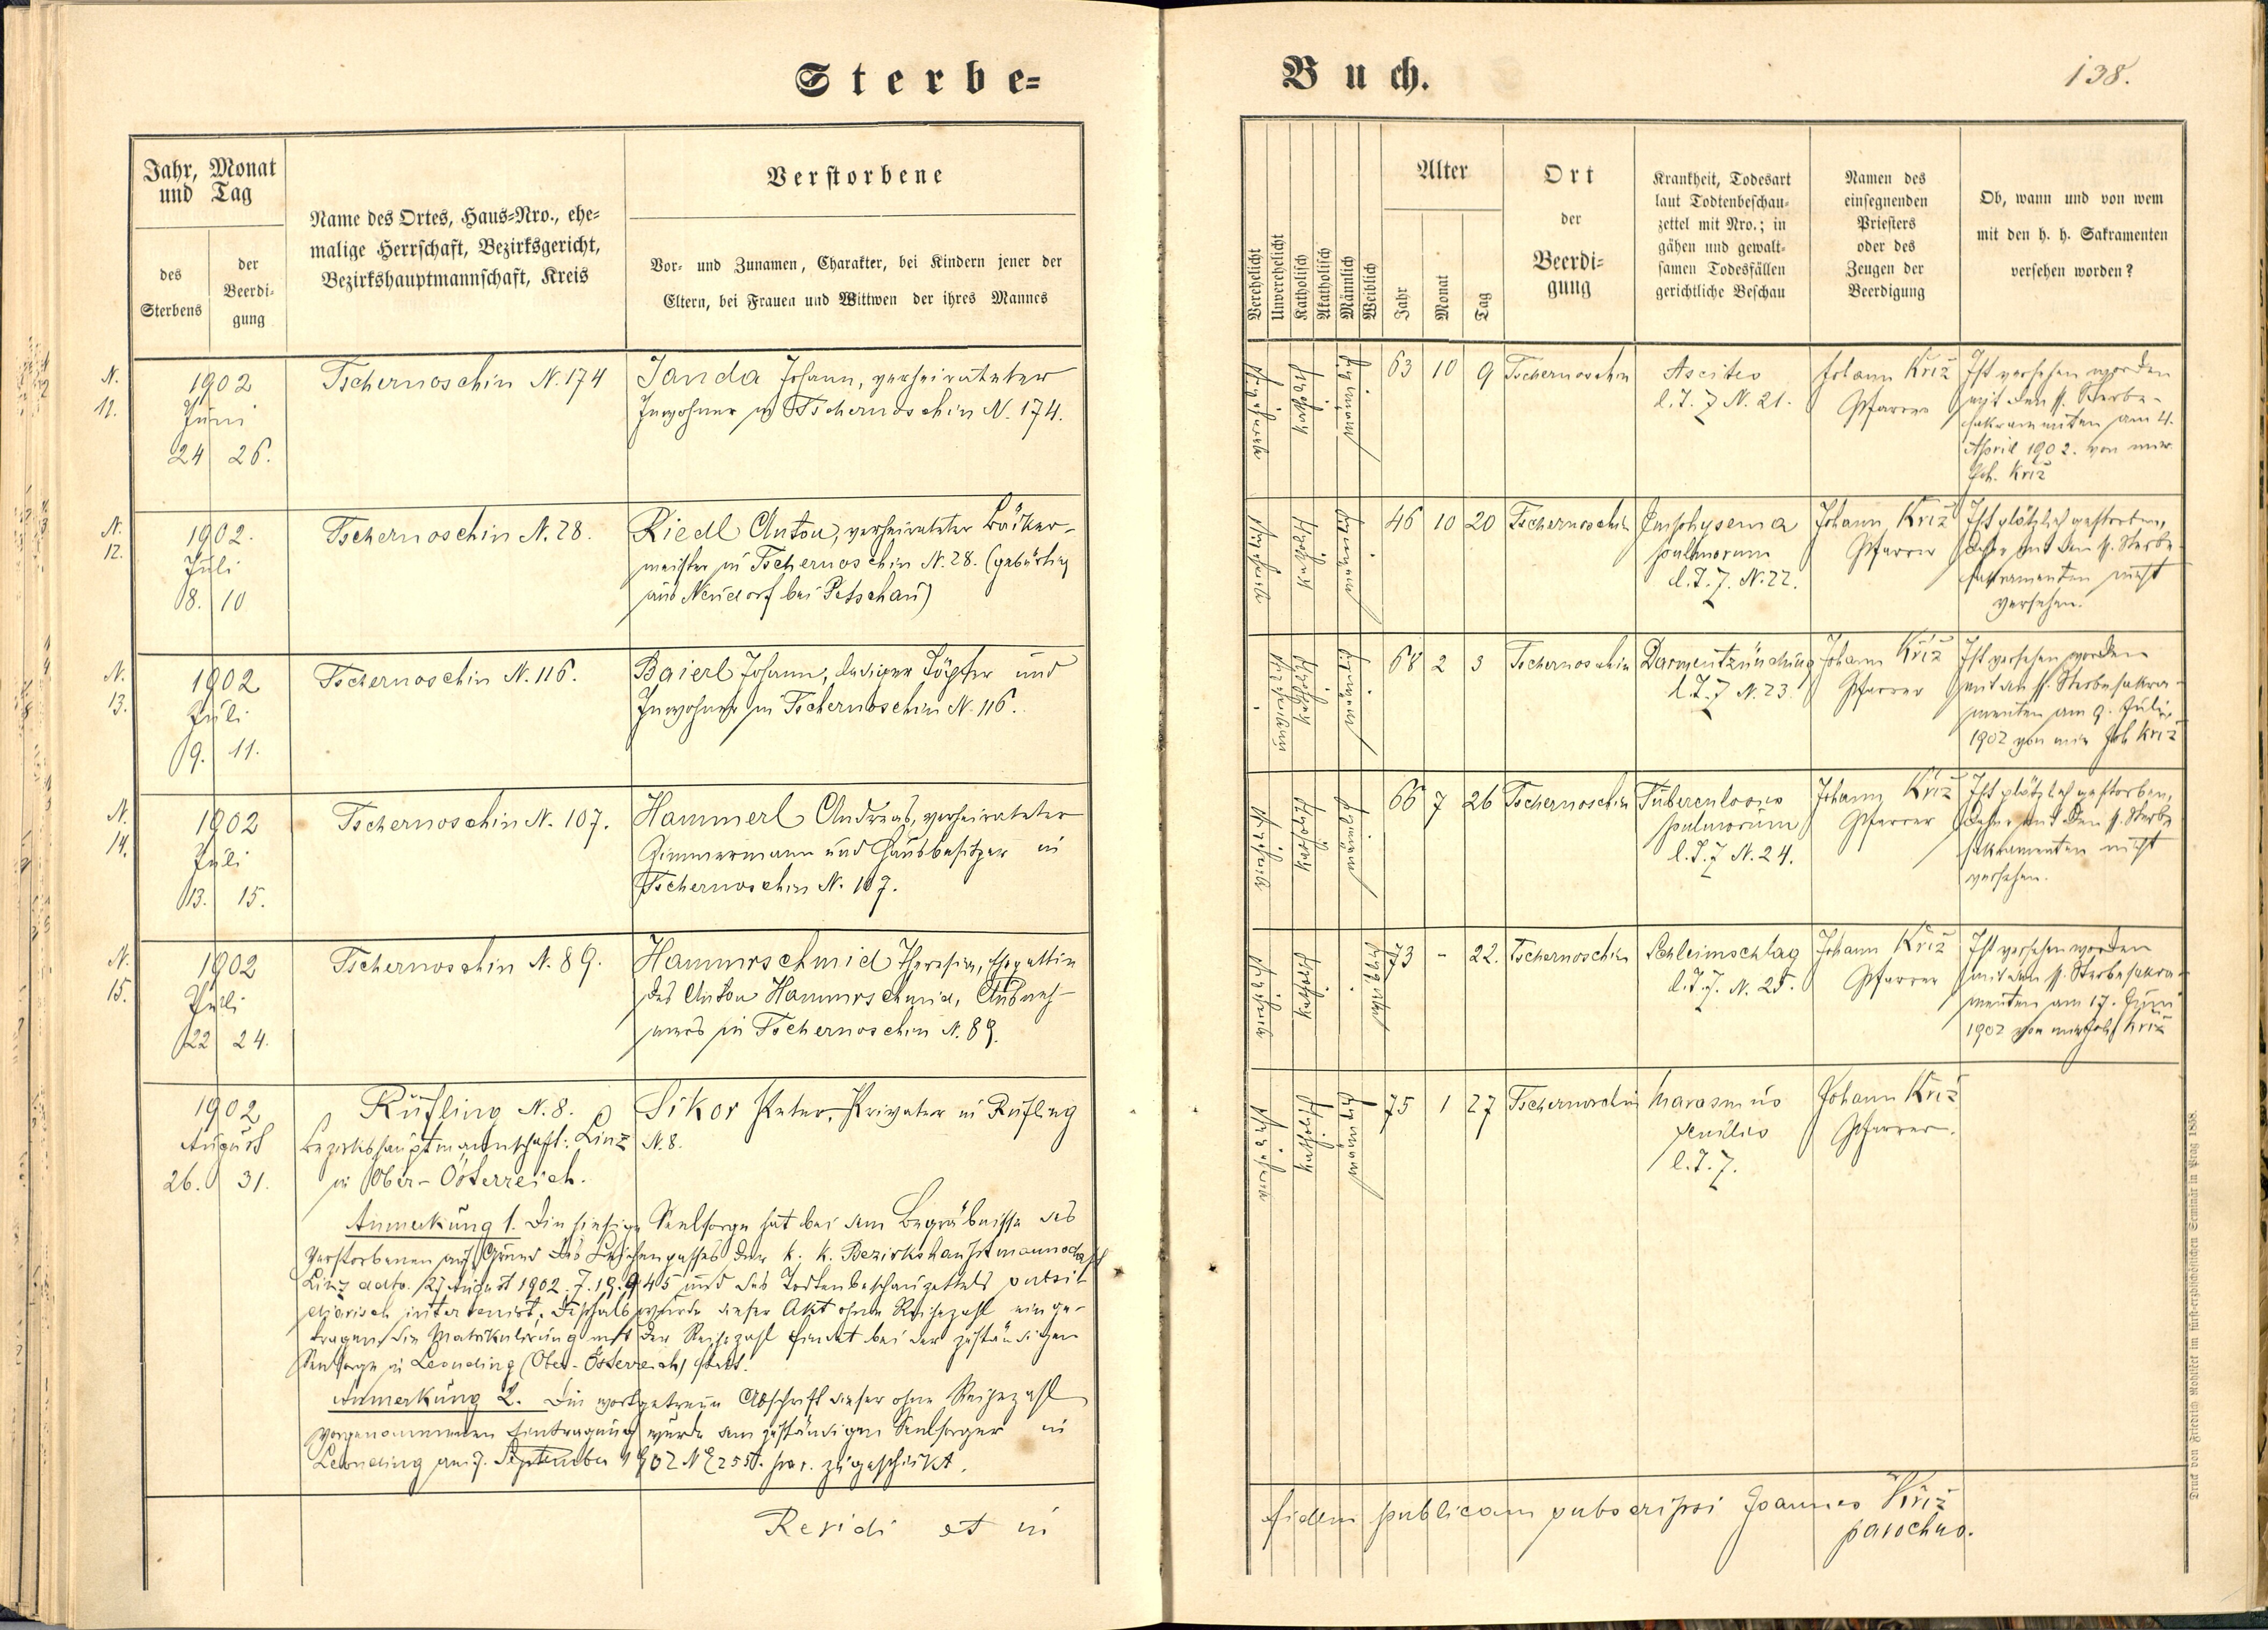 Sterbe=
Buch.
138.
Jahr, Monat
und Tag
des
Sterbens
der
Beerdi-
gung
Name des Ortes, Haus=Nro., ehe=
malige Herrschaft, Bezirksgericht,
Bezirkshauptmannschaft, Kreis
Verstorbene
Vor- und Zunamen, Charakter, bei Kindern jener der
Eltern, bei Frauen und Wittwen der ihres Mannes
Verehelicht
Unverehelicht
Katholisch
Akatholisch
Männlich
Weiblich
Alter
Jahr
Monat
Tag
Ort
der
Beerdi=
gung
Krankheit, Todesart
laut Todtenbeschau-
zettel mit Nro.; in
gähen und gewalt-
samen Todesfällen
gerichtliche Beschau
Namen des
einsegnenden
Priesters
oder des
Zeugen der
Beerdigung
Ob, wann und von wem
mit den h. h. Sakramenten
versehen worden?
N.
11.
1902
Juni
24 26.
Tschernoschin N. 174
Janda Johann, verheirateter
Inwohner in Tschernoschin N. 174.
verheiratet
katholisch
männlich
63 10 9
Tschernoschin
Ascites
l. T. Z N. 21.
Johann Kříž
Pfarrer
Ist versehen worden
mit den hl. Sterbe-
sakramenten am 4.
April 1902. von mir
Joh. Kříž
N.
12.
1902.
Juli
8. 10
Tschernoschin N. 28.
Riedl Anton, verheirateter Bäcker-
meister in Tschernoschin N. 28. (gebürtig
aus Neudorf bei Petschau)
46 10 20
Tschernoschin
Emphysema
pulmorum
l. T. Z. N. 22.
Johann Kříž
Pfarrer
Ist plötzlich gestorben,
daher mit den hl. Sterbe-
sakramenten nicht
versehen.
N.
13.
1902
Juli
9. 11.
Tschernoschin N. 116.
Baierl Johann, lediger Töpfer und
Inwohner in Tschernoschin N. 116.
68 2 3
Tschernoschin
Darmentzündung
l. T. Z N. 23.
Johann Kříž
Pfarrer
Ist versehen worden
mit den hl. Sterbesakra-
menten am 9. Juli
1902 von mir Joh Kříž
N.
14.
1902
Juli
13. 15.
Tschernoschin N. 107.
Hammerl Andreas, verheirateter
Zimmermann und Hausbesitzer in
Tschernoschin N. 107.
66 7 26
Tschernoschin
Tuberculosis
pulmorum
l. T. Z N. 24.
Johann Kříž
Pfarrer
Ist plötzlich gestorben,
daher mit den hl. Sterbe
sakramenten nicht
versehen.
N.
15.
1902
Juli
22 24.
Tschernoschin N. 89.
Hammrschmid Theresia, Ehegattin
des Anton Hammrschmid, Ausneh-
mers in Tschernoschin N. 89.
73 - 22.
Tschernoschin
Schleimschlag
l. T. Z. N. 25.
Johann Kříž
Pfarrer
Ist versehen worden
mit den hl. Sterbesakra-
menten am 17. Juni
1902 von mir Joh Kříž
1902
August
26. 31.
Rufling N. 8.
Bezirkshauptmannschaft: Linz
in Ober-Österreich.
Sikor Peter, Privater in Rufling
N. 8.
75 1 27
Tschernoschin
Marasmus
senilis
l. T. Z.
Johann Kříž
Pfarrer.
Anmerkung 1. Die hiesige Seelsorge hat bei dem Begräbnisse des
Verstorbenen auf Grund des Leichenpasses der k. k. Bezirkshauptmannschaft
Linz ddto. 27 August 1902. Z. 19.945 und des Todtenbeschauzettels
intervenirt, deßhalb wurde dieser Akt ohne Reihezahl einge-
tragen. Die Matrikulirung mit der Reihezahl findet bei der zuständigen
Seelsorge in Leonding (Ober-Österreich) statt.
Anmerkung 2. Die wortgetreue Abschrift dieser ohne Reihezahl
vorgenommenen Eintragung wurde dem zuständigen Seelsorger in
Leonding am 7. September 1902 zugeschickt.
Revidi et in
fidem publicam subscripsi Joannes Kříž
parochus.
Druck von Friedrich Rohliček im fürst-erzbischöflichen Seminär in Prag 1888.